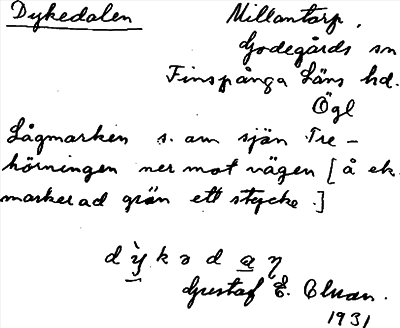 Dykedalen
Millantorp.
Godegårds sn
Finspånga Läns hd.
Ögl
Lågmarken s. om sjön Tre-
hörningen ner mot vägen [å ek.
markerad grön ett stycke.]
dỳ̱kəda̱ŋ
Gustaf E.
1931